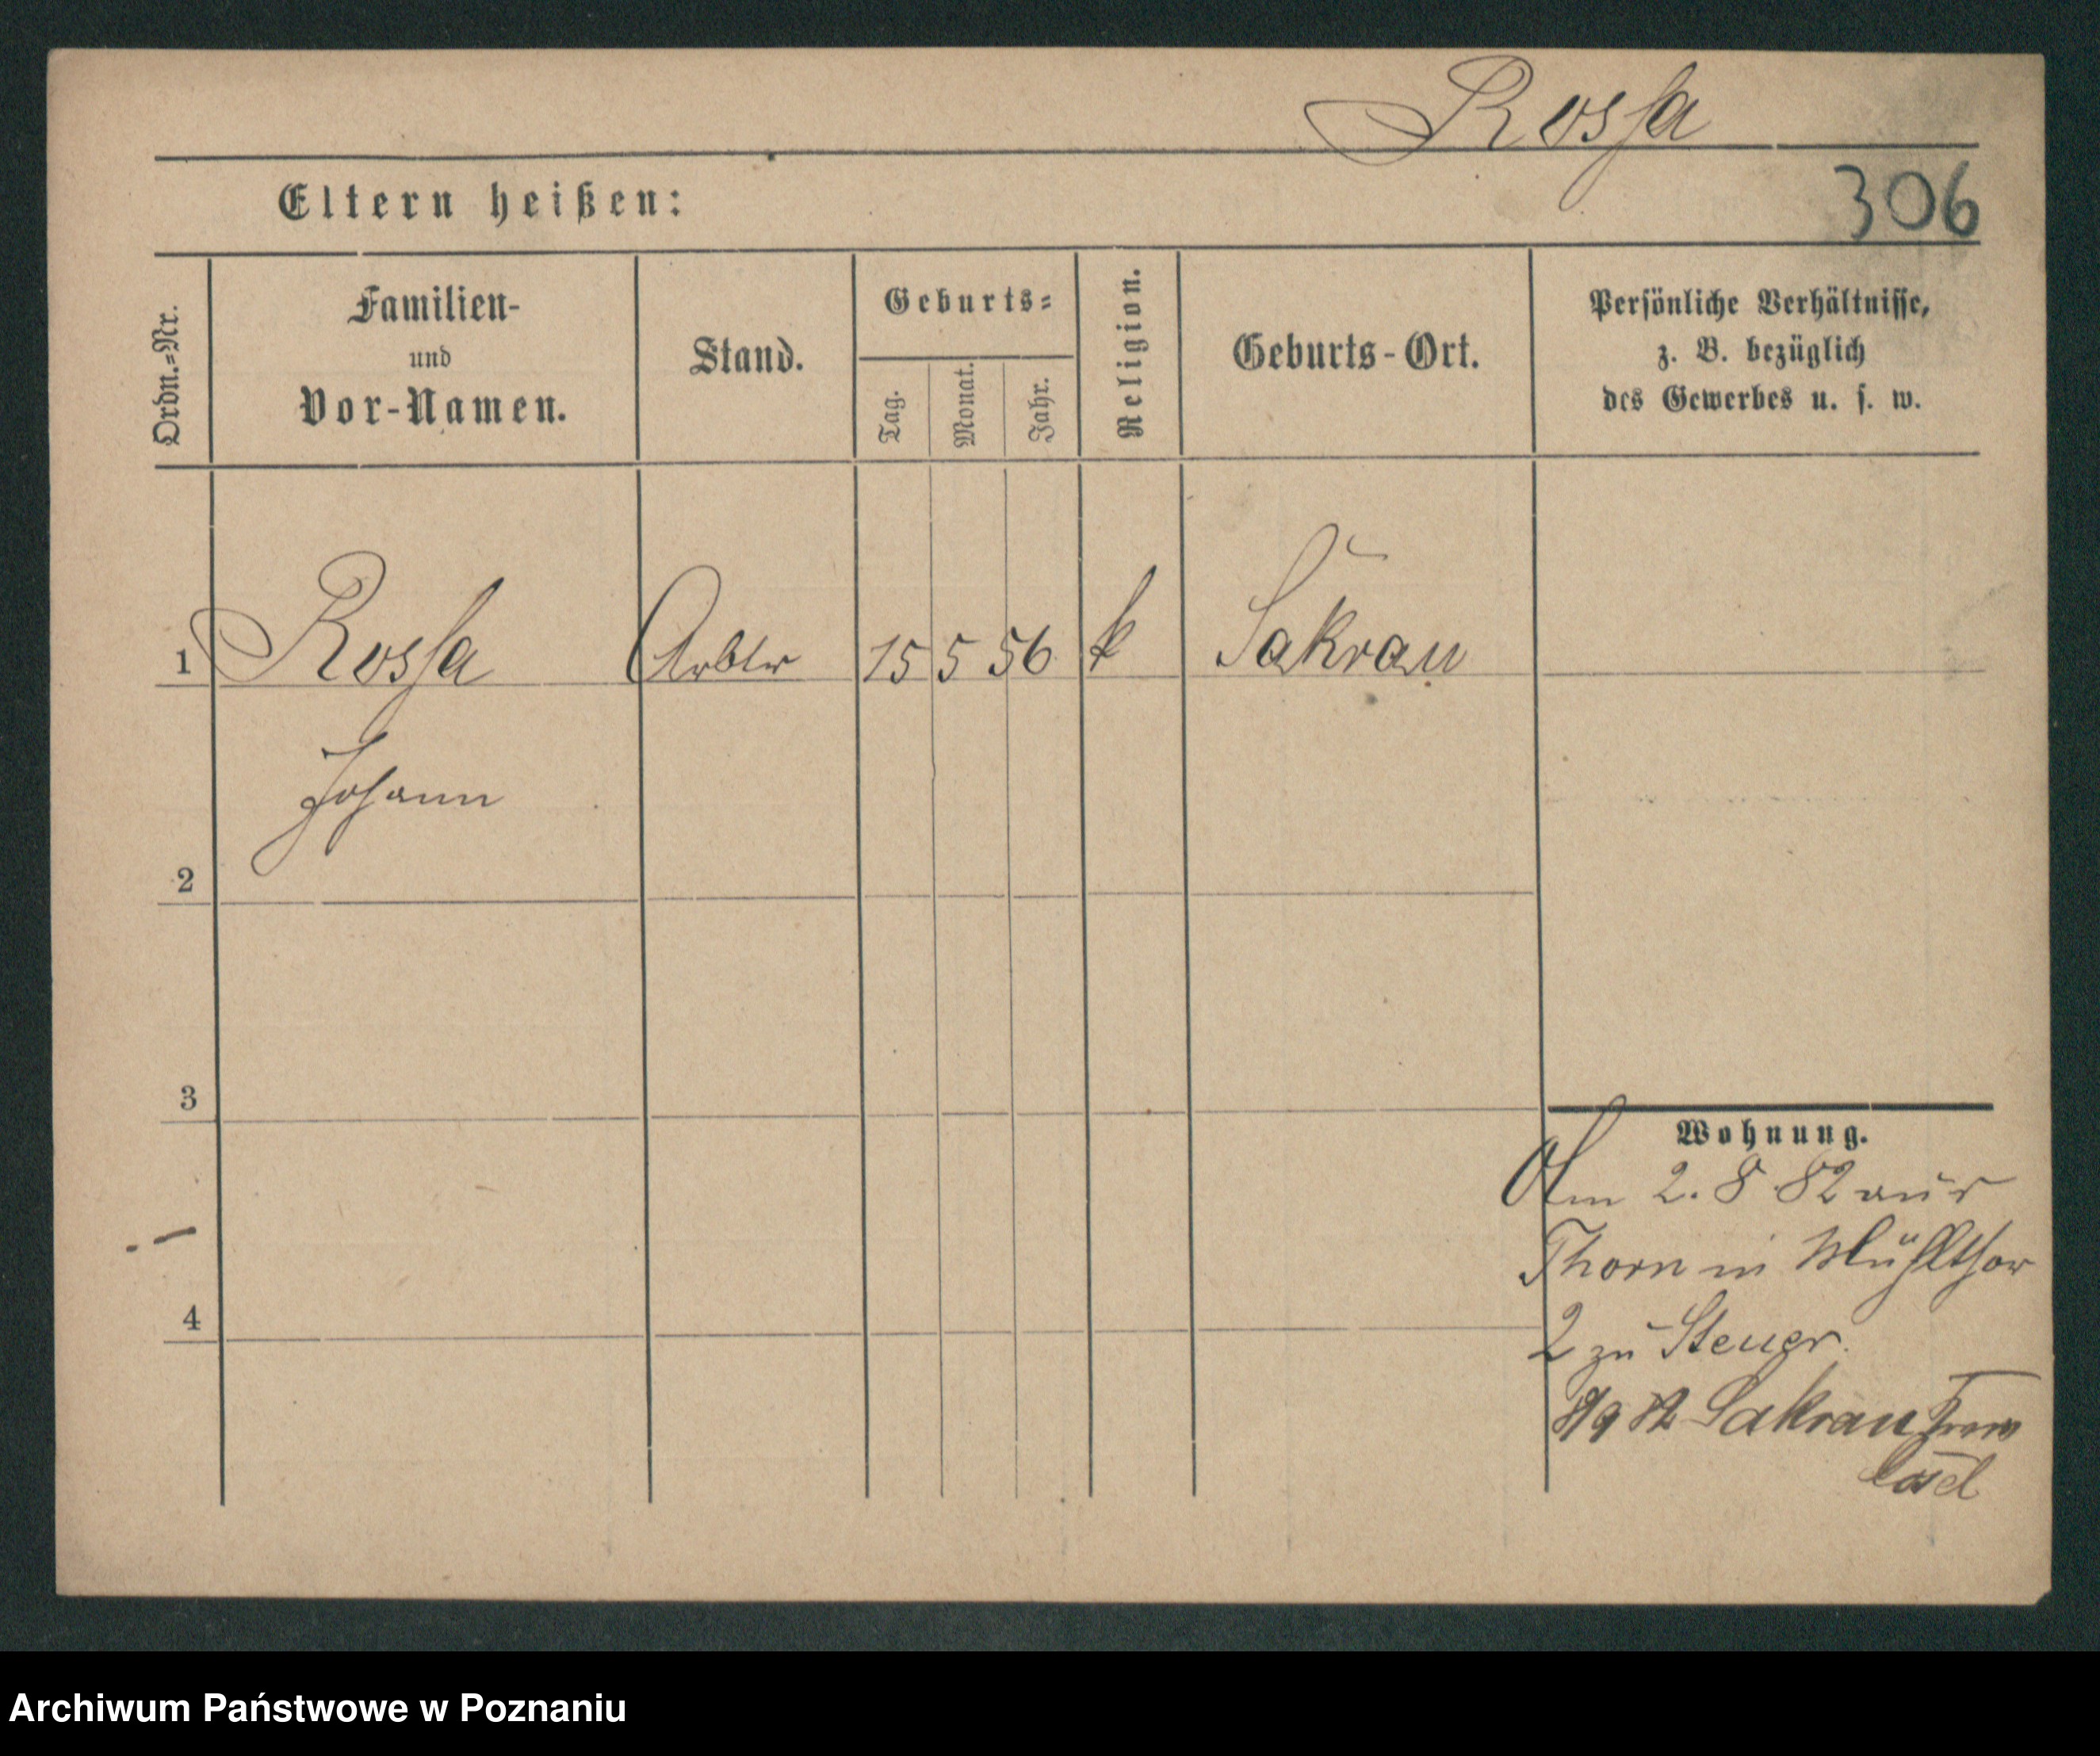 Rossa
Eltern heißen:
306
Ordn.=Nr.
Familien-
und
Vor-Namen.
Stand.
Geburts=
Tag.
Monat.
Jahr.
Religion.
Geburts-Ort.
Persönliche Verhältnisse,
z. B. bezüglich
des Gewerbes u. s. w.
1 Rossa Arbtr 15 5 56 k Sakrau
Johann
2
3
Wohnung.
Am 2. 8 82 aus
Thorn in Mühlthor
4
2 zu Steuer.
82 Sakrau
Cosel
Archiwum Państwowe w Poznaniu